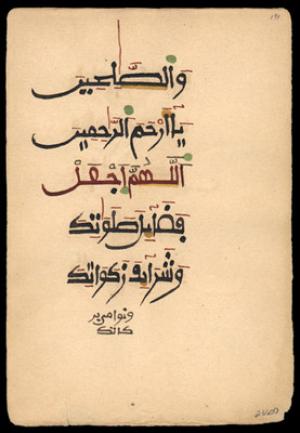 وَالصَّلِحِينَ
يَا أَرْحَمَ الرَّحِمِينَ
اللَّهُمَّ اجْعَلْ
فَضَايِلَ صَلَوَتِكَ
وَشَرَايِفَ زَكَوَاتِكَ
ونوامي بر
كاتك